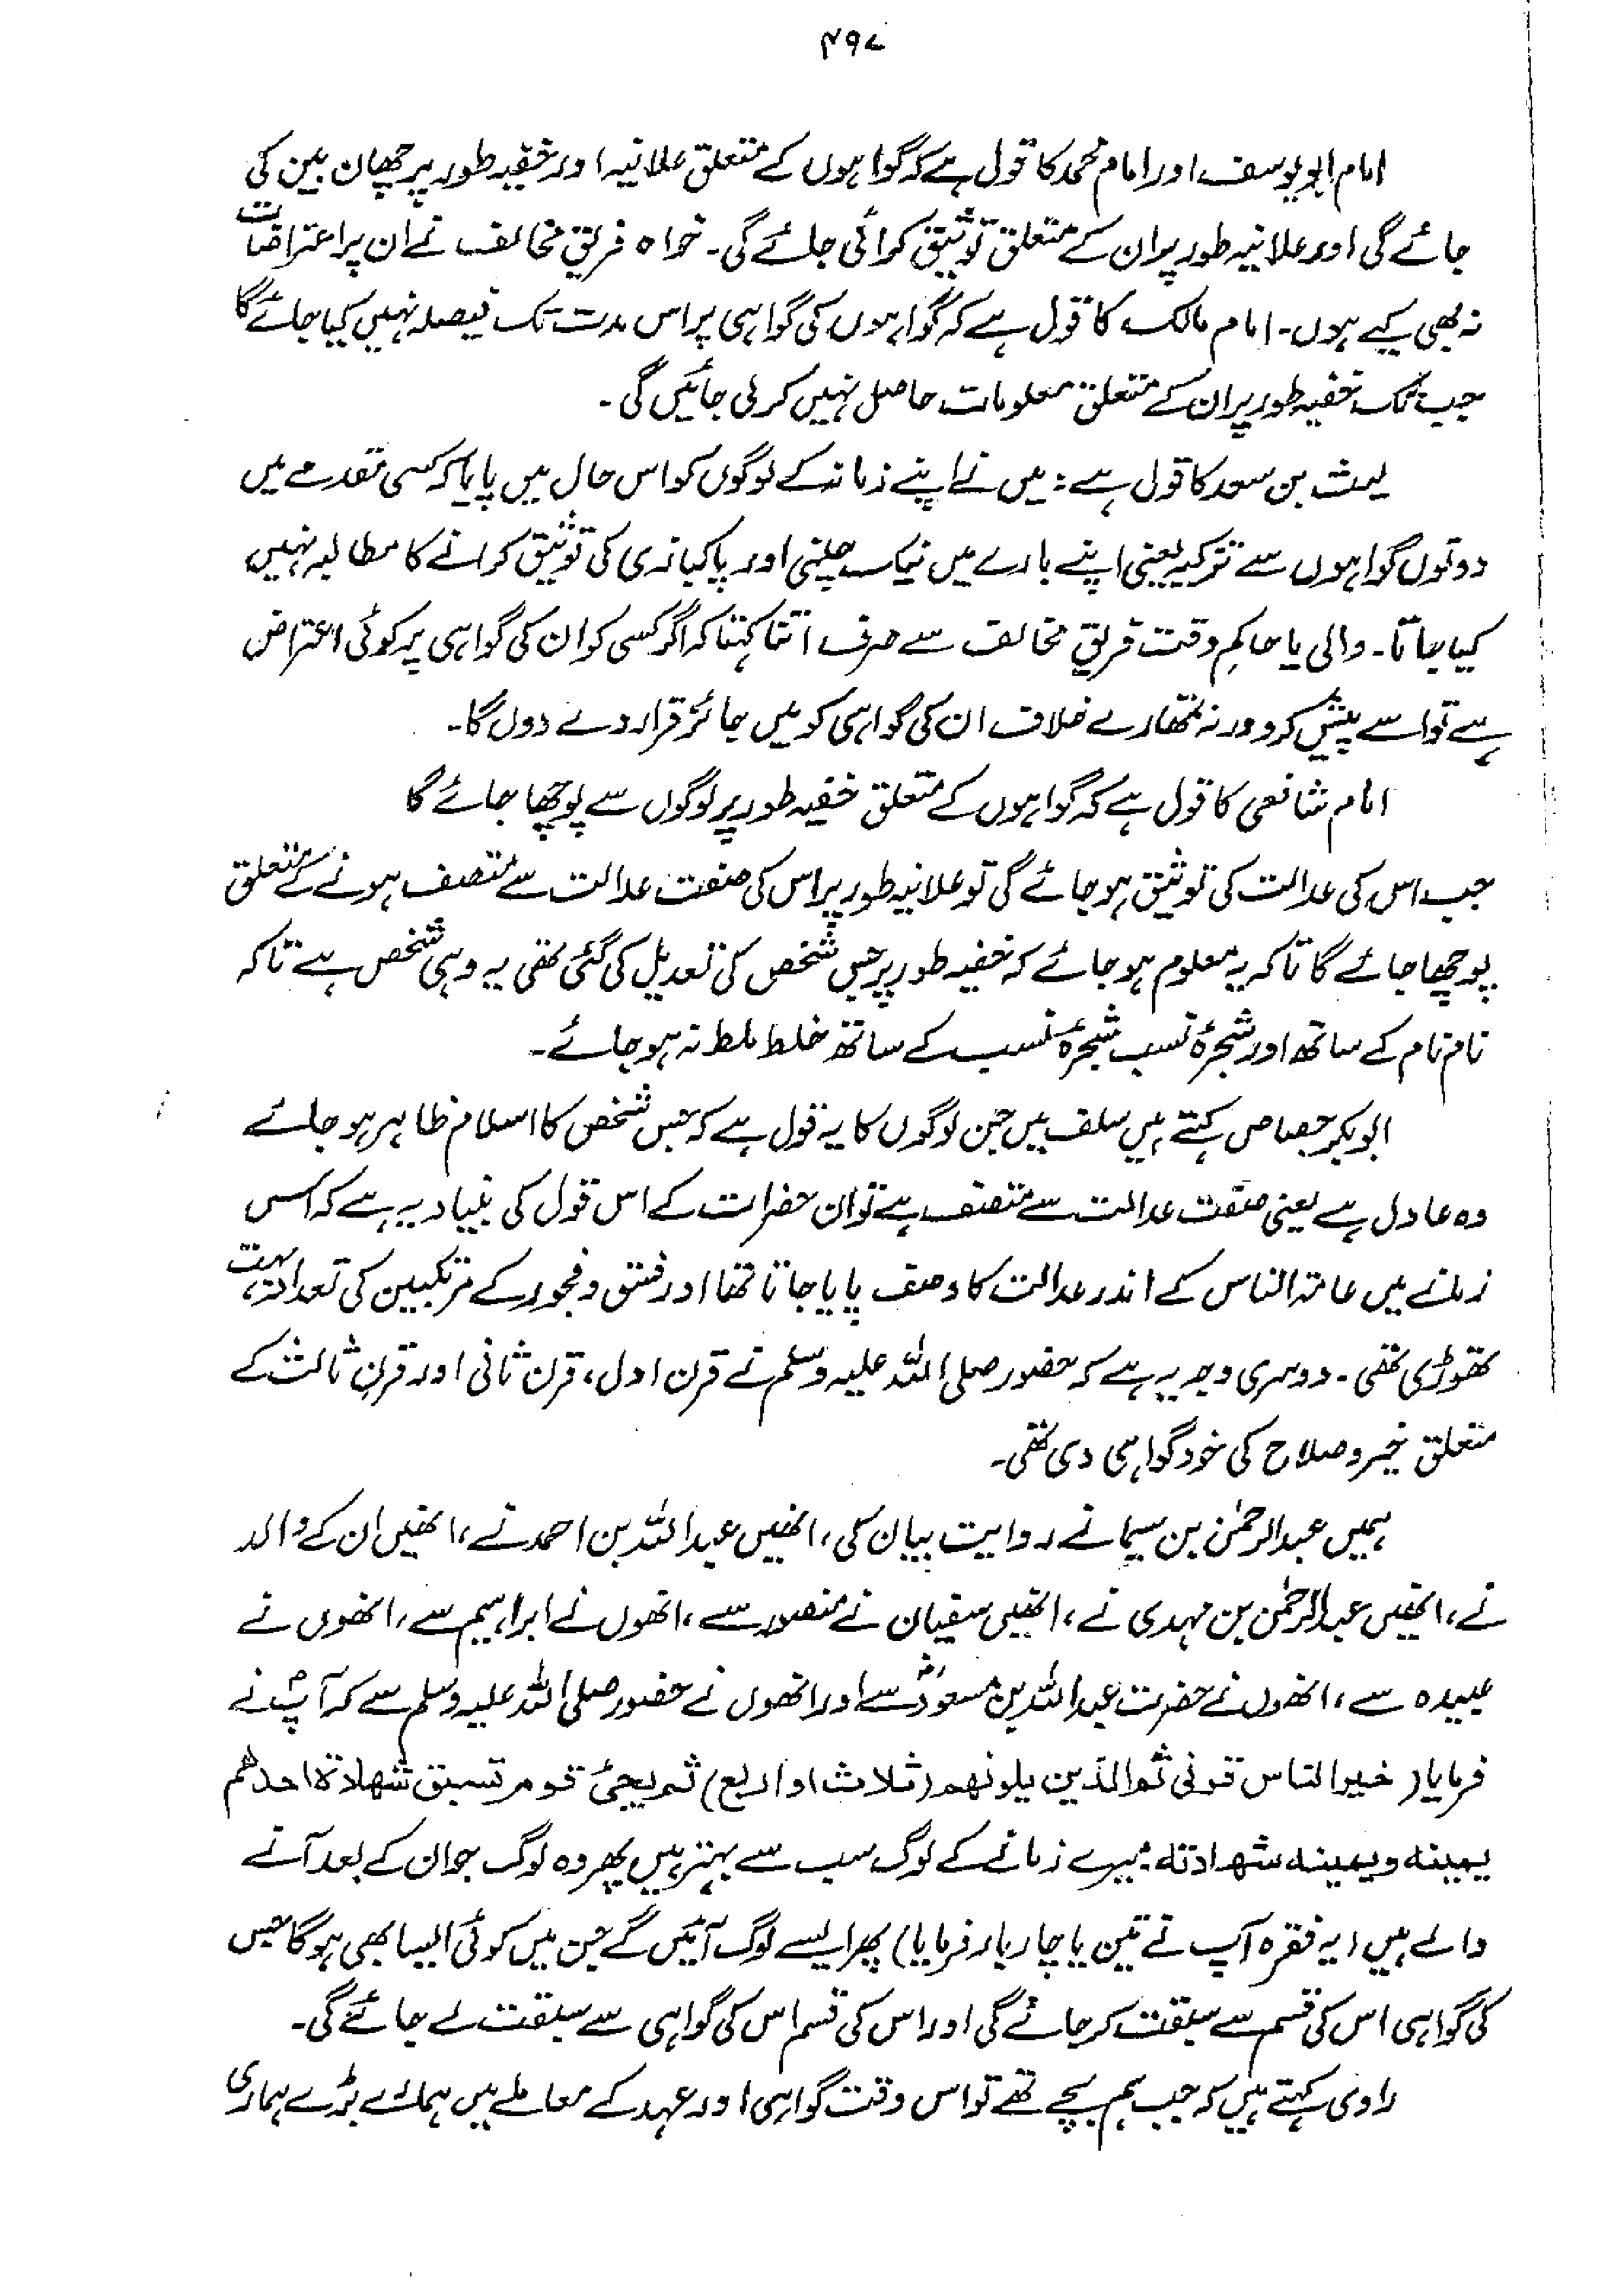 ۴۹۷
امام ابو یوسف اور امام محمد کا قول ہے کہ گواہوں کے متعلق علانیہ اور خفیہ طور پر چھان بین کی
جائے گی اور علانیہ طور پر ان کے متعلق توثیق کرائی جائے گی۔ خواہ فریق مخالف نے ان پر اعتراضات
نہ بھی کیے ہوں۔ امام مالک کا قول ہے کہ گواہوں کی گواہی پر اس مدت تک فیصلہ نہیں کیا جائے گا
جب تک خفیہ طور پر ان کے متعلق معلومات حاصل نہیں کر لی جائیں گی۔
لیث بن سعد کا قول ہے: میں نے اپنے زمانہ کے لوگوں کو اس حال میں پایا کہ کسی مقدمے میں
دونوں گواہوں سے تزکیہ یعنی اپنے بارے میں نیک چلنی اور پاکبازی کی توثیق کرانے کا مطالبہ نہیں
کیا جاتا۔ والی یا حاکمِ وقت فریقِ مخالف سے صرف اتنا کہتا کہ اگر کسی کو ان کی گواہی پر کوئی اعتراض
ہے تو اسے پیش کرو ورنہ تمھارے خلاف ان کی گواہی کو میں جائز قرار دے دوں گا۔
امام شافعی کا قول ہے کہ گواہوں کے متعلق خفیہ طور پر لوگوں سے پوچھا جائے گا
جب اس کی عدالت کی توثیق ہو جائے گی تو علانیہ طور پر اس کی صفت عدالت سے متصف ہونے کے متعلق
پوچھا جائے گا تاکہ یہ معلوم ہو جائے کہ خفیہ طور پر جس شخص کی تعدیل کی گئی تھی یہ وہی شخص ہے تاکہ
نام نام کے ساتھ اور شجرۂ نسب شجرۂ نسب کے ساتھ خلط ملط نہ ہو جائے۔
ابو بکر جصاص کہتے ہیں سلف میں جن لوگوں کا یہ قول ہے کہ جس شخص کا اسلام ظاہر ہو جائے
وہ عادل ہے یعنی صفت عدالت سے متصف ہے تو ان حضرات کے اس قول کی بنیاد یہ ہے کہ اس
زمانے میں عامۃ الناس کے اندر عدالت کا وصف پایا جاتا تھا اور فسق و فجور کے مرتکبین کی تعداد بہت
تھوڑی تھی۔ دوسری وجہ یہ ہے کہ حضور صلی اللہ علیہ وسلم نے قرن اول، قرن ثانی اور قرنِ ثالث کے
متعلق خیر و صلاح کی خود گواہی دی تھی۔
ہمیں عبدالرحمٰن بن سیما نے روایت بیان کی، انھیں عبداللہ بن احمد نے، انھیں ان کے والد
نے، انھیں عبدالرحمٰن بن مہدی نے، انھیں سفیان نے منصور سے، انھوں نے ابراہیم سے، انھوں نے
عبیدہ سے، انھوں نے حضرت عبداللہ بن مسعودؓ سے اور انھوں نے حضور صلی اللہ علیہ وسلم سے کہ آپؐ نے
فرمایا (خیر الناس قرنی ثم الذین یلونهم (ثلاث او اربع) ثم یجیئ قوم تسبق شهادة احدهم
یمینه ویمینه شهادته: میرے زمانے کے لوگ سب سے بہتر ہیں پھر وہ لوگ جو ان کے بعد آنے
والے ہیں (یہ فقرہ آپ نے تین یا چار بار فرمایا) پھر ایسے لوگ آئیں گے جن میں کوئی ایسا بھی ہوگا جس
کی گواہی اس کی قسم سے سبقت کر جائے گی اور اس کی قسم اس کی گواہی سے سبقت لے جائے گی۔
راوی کہتے ہیں کہ جب ہم بچے تھے تو اس وقت گواہی اور عہد کے معاملے میں ہمارے بڑے ہماری